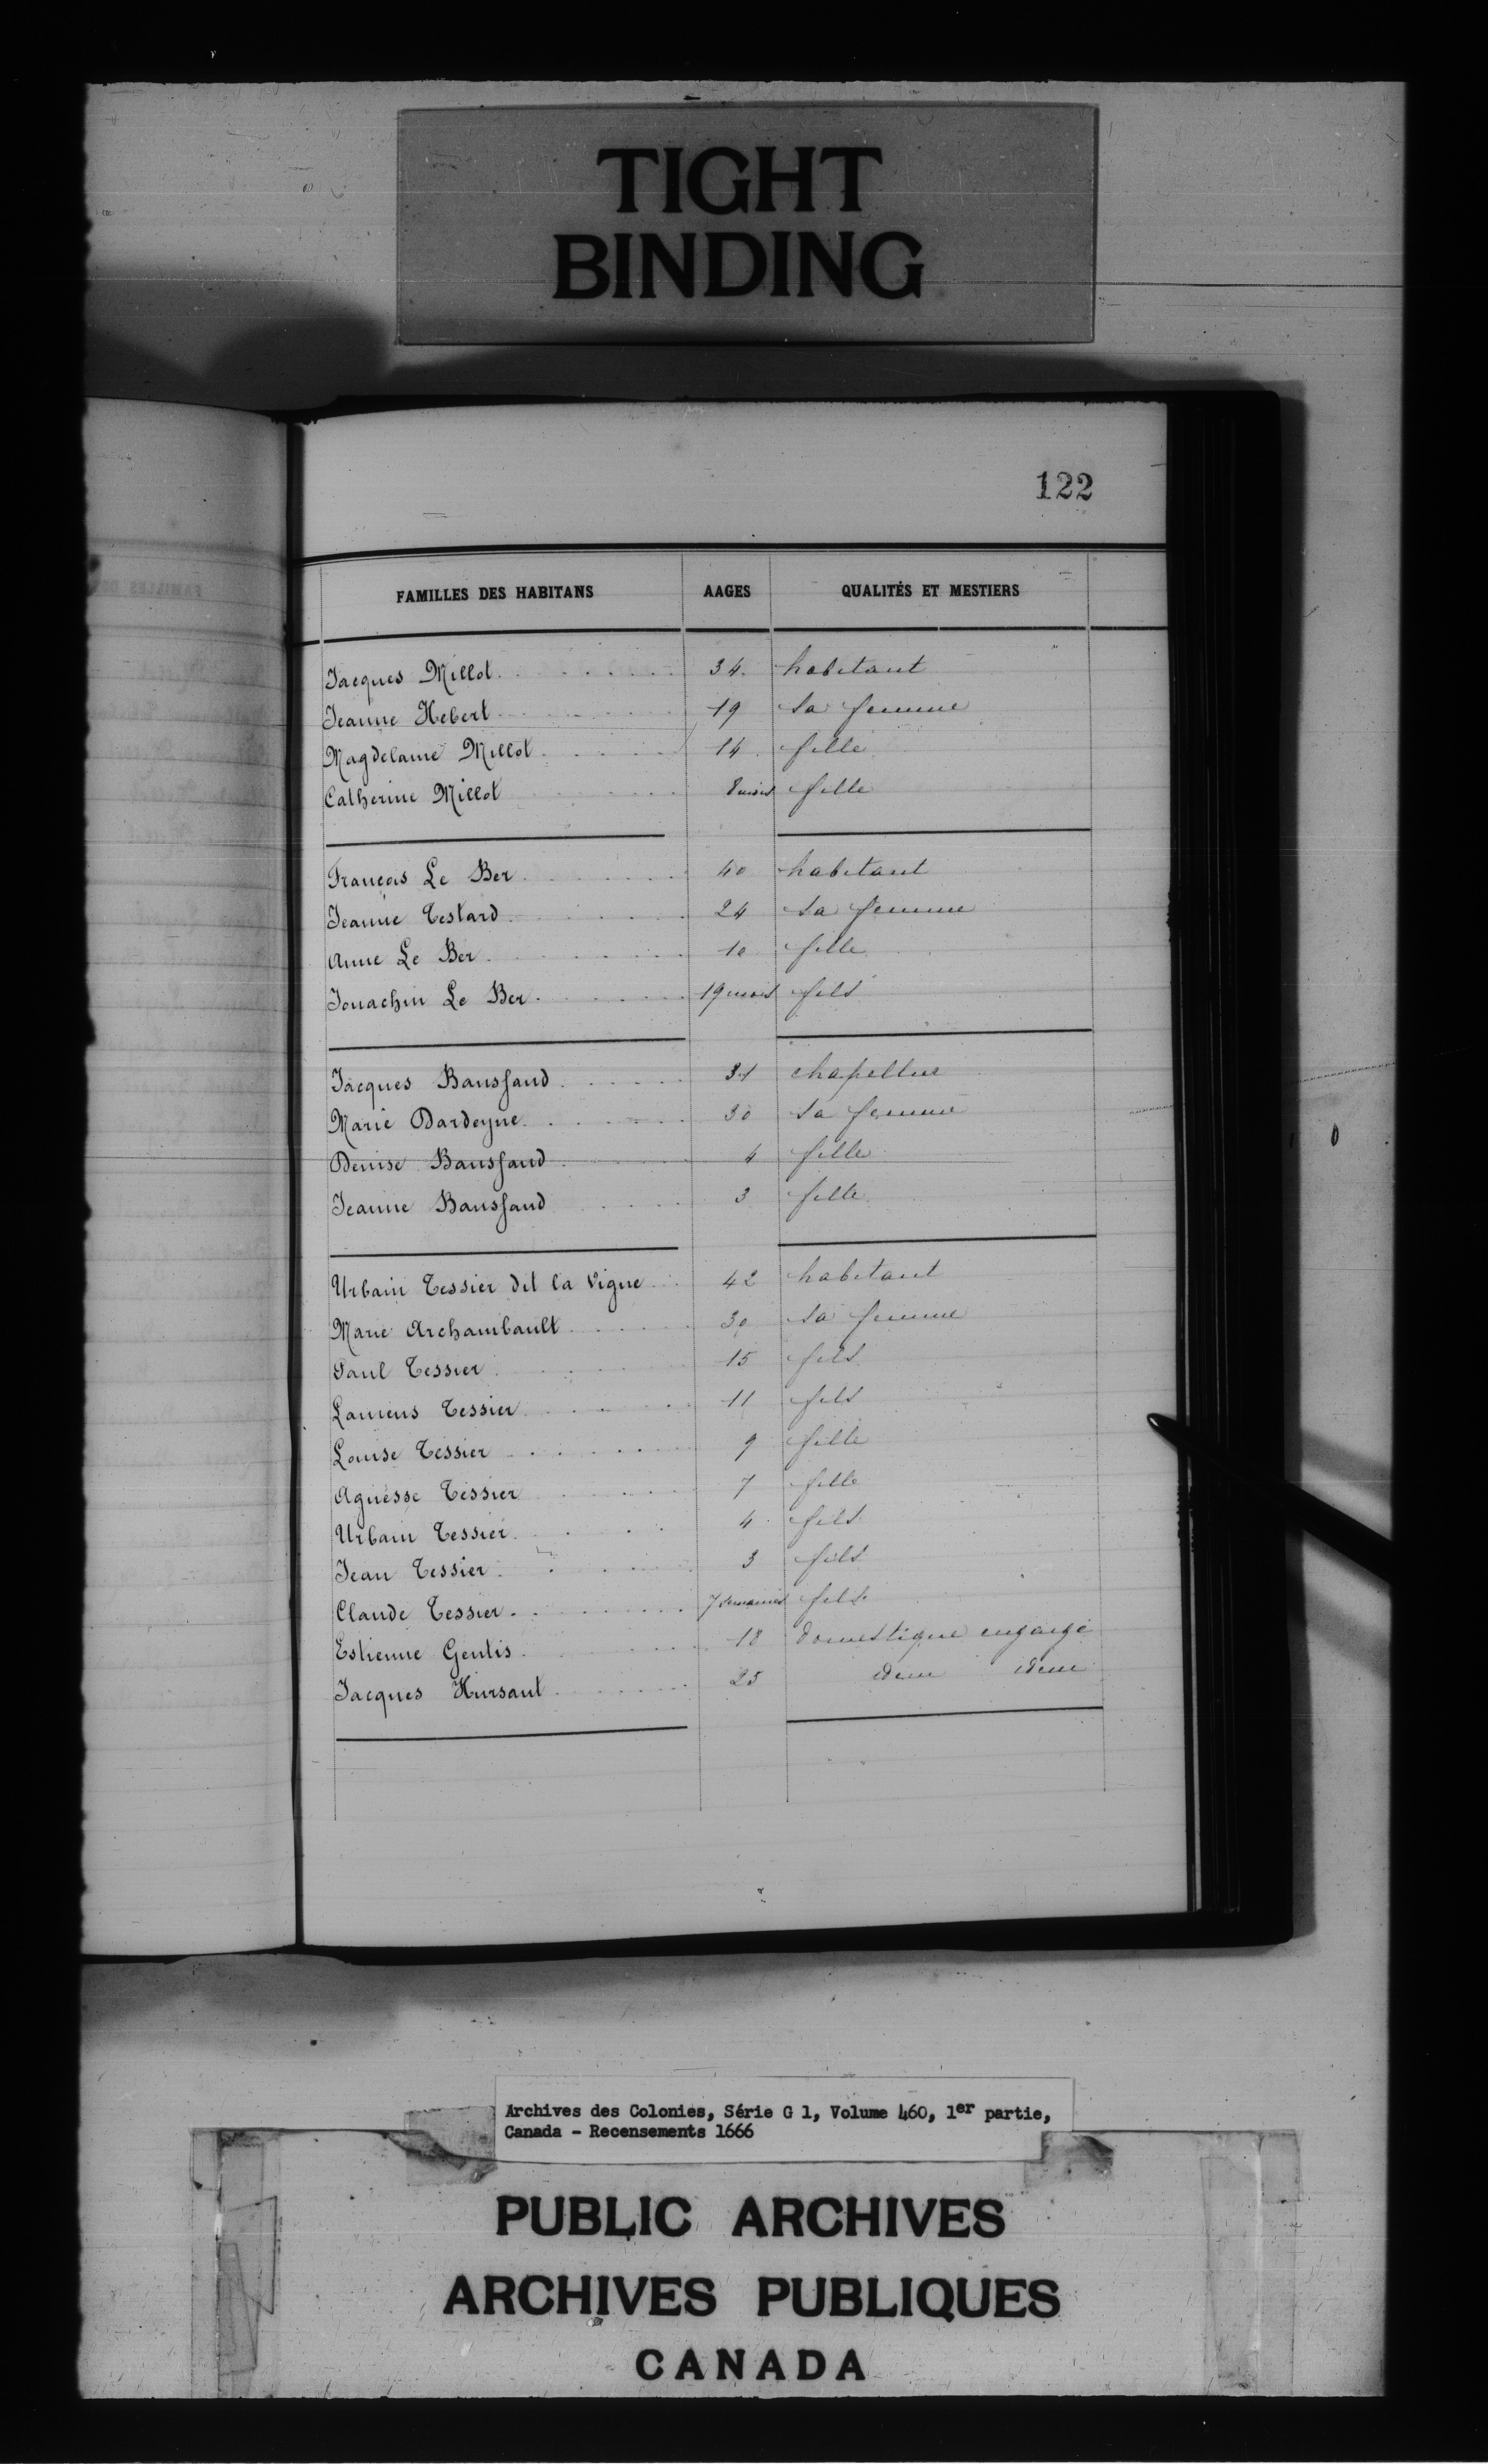 TIGHT
BINDING
122
FAMILLES DES HABITANS AAGES QUALITÉS ET MESTIERS
Jacques Millot 34 habitant
Jeanne Hebert 19 sa femme
Magdelaine Millot 14 fille
Catherine Millot 8 mois fille
François Le Ber 40 habitant
Jeanne Testard 24 sa femme
Anne Le Ber 10 fille
Jouachin Le Ber 19 mois fils
Jacques Baussand 31 chapellier
Marie Dardeyne 30 sa femme
Denise Baussand 4 fille
Jeanne Baussand 3 fille
Urbain Tessier dit la Vigne 42 habitant
Marie Archambault 30 sa femme
Paul Tessier 15 fils
Laurens Tessier 11 fils
Louise Tessier 9 fille
Agnesse Tessier 7 fille
Urbain Tessier 4 fils
Jean Tessier 3 fils
Claude Tessier 7 semaines fils
Estienne Gentis 18 domestique engagé
Jacques Hursaut 25 idem idem
Archives des Colonies, Série G 1, Volume 460, 1er partie,
Canada - Recensements 1666
PUBLIC ARCHIVES
ARCHIVES PUBLIQUES
CANADA